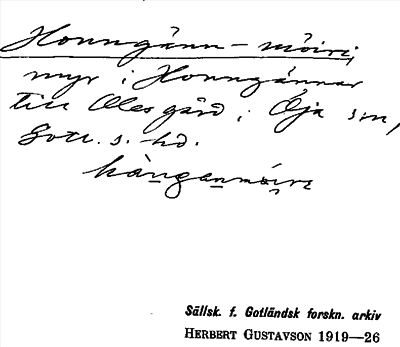 Honngänn-möiri,
myr i Honngännar
till Olesgård, i Öja sn,
Gotl. s. hd.
håŋganmöiri
Sällsk. f. Gotländsk forskn. arkiv
HERBERT GUSTAVSON 1919—26